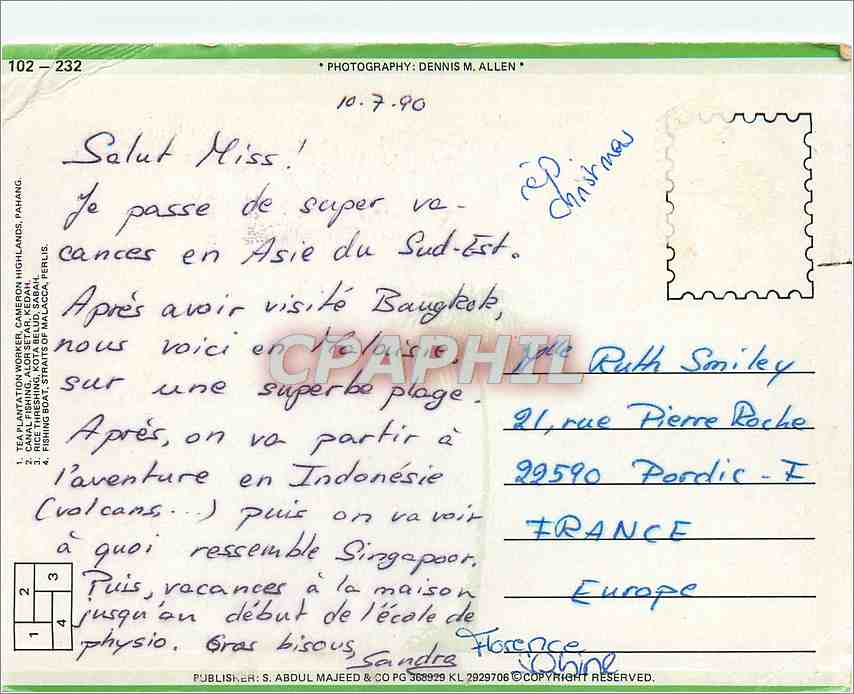 102 – 232
* PHOTOGRAPHY: DENNIS M. ALLEN *
10.7.90
Salut Miss!
Je passe de super va-
cances en Asie du Sud-Est.
Après avoir visité Bangkok,
nous voici en Malaisie,
sur une superbe plage.
Après, on va partir à
l'aventure en Indonésie
(volcans, ...) puis on va voir
à quoi ressemble Singapoor.
Puis, vacances à la maison
jusqu'au début de l'école de
physio. Gros bisous,
Sandra
rép
Christmas
Mlle Ruth Smiley
21, rue Pierre Roche
22590 Pordic - F
FRANCE
Europe
Florence
1. TEA PLANTATION WORKER, CAMERON HIGHLANDS, PAHANG.
2. CANAL FISHING, ALOR SETAR, KEDAH.
3. RICE THRESHING, KOTA BELUD, SABAH.
4. FISHING BOAT, STRAITS OF MALACCA, PERLIS.
2 3
1 4
CPAPHIL
PUBLISHER: S. ABDUL MAJEED & CO PG 368929 KL 2929706 © COPYRIGHT RESERVED.